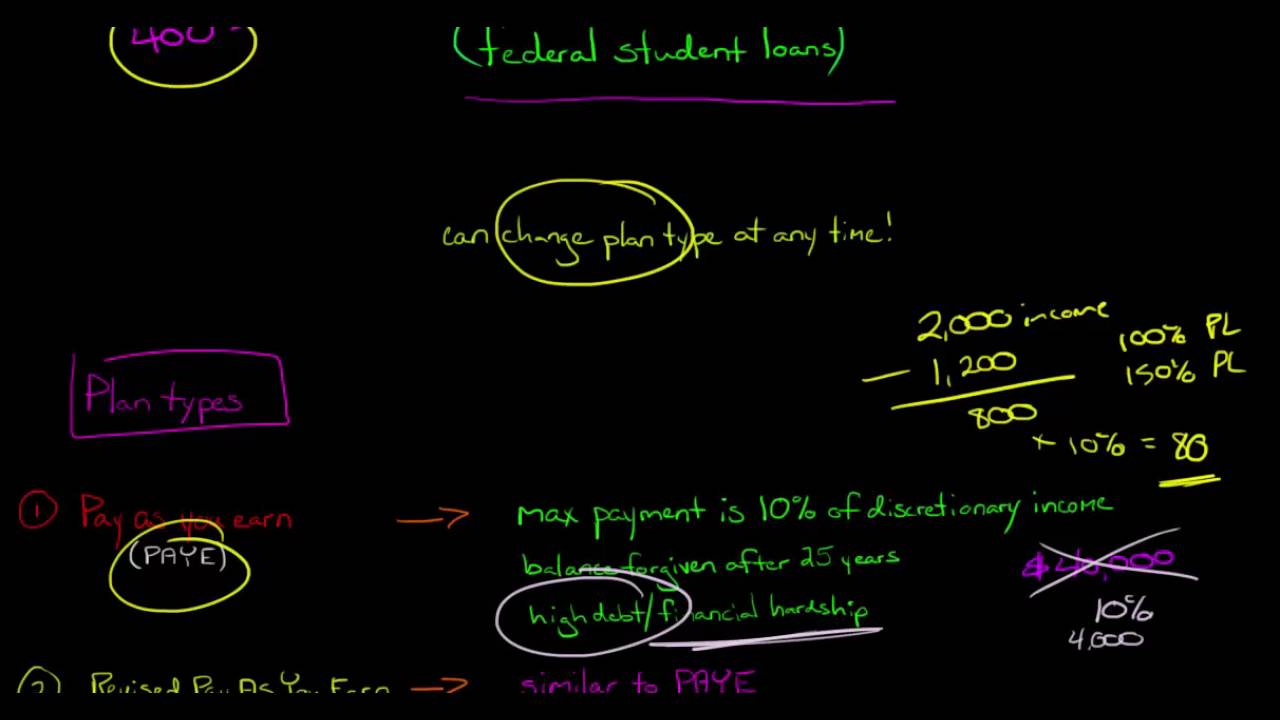 400
(federal student loans)
can change plan type at any time!
2,000 income
100% PL
- 1,200
150% PL
800
Plan types
+ 10% = 80
① Pay as you earn → max payment is 10% of discretionary income
(PAYE)
balance forgiven after 25 years
$40,000
high debt/financial hardship
10%
4,000
② Revised Pay As You Earn → similar to PAYE